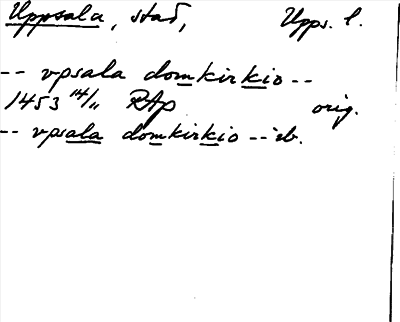 Uppsala, stad, Upps. l.
-- vpsala domkirkio --
1453 14/11 RAp orig.
-- vpsala domkirkio -- ib.